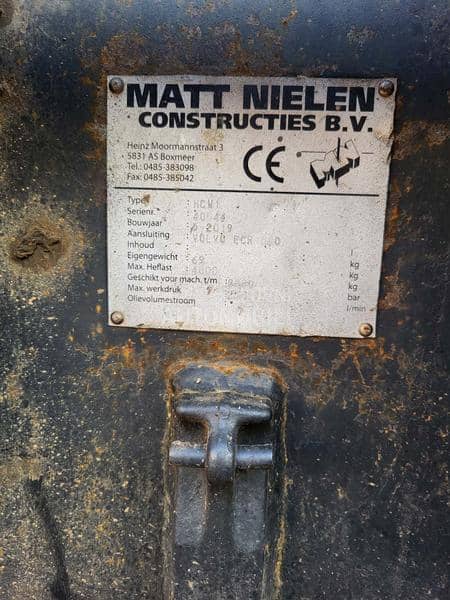 MATT NIELEN
CONSTRUCTIES B.V.
Heinz Moormannstraat 3
5831 AS Boxmeer
Tel.: 0485-383098
Fax: 0485-385042
CE
Type
Serienr.
Bouwjaar 2019
Aansluiting VOLVO ECR
Inhoud l
Eigengewicht 69 kg
Max. Heflast kg
Geschikt voor mach. t/m kg
Max. werkdruk bar
Olievolumestroom l/min